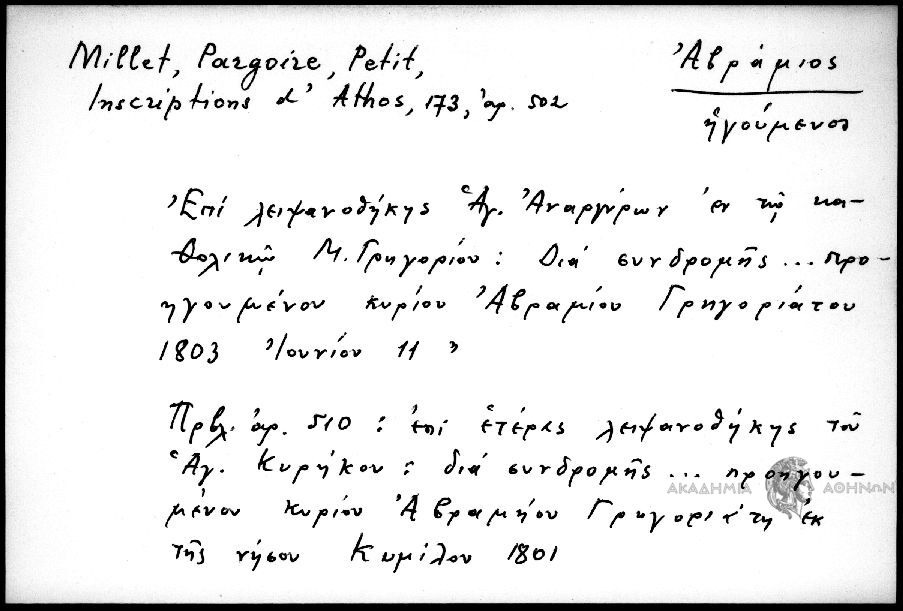 Millet, Pargoire, Petit,
Inscriptions d' Athos, 173, ἀρ. 502
Ἀβράμιος
ἡγούμενος
Ἐπί λειψανοθήκης Ἁγ. Ἀναργύρων ἐν τῷ κα-
θολικῷ Μ. Γρηγορίου : Διά συνδρομῆς ... προ-
ηγουμένου κυρίου Ἀβραμίου Γρηγοριάτου
1803 Ἰουνίου 11 "
Πρβλ. ἀρ. 510 : ἐπί ἑτέρας λειψανοθήκης τοῦ
Ἁγ. Κυρήκου : διά συνδρομῆς ... προηγου-
μένου κυρίου Ἀβραμήου Γρηγοριάτη ἐκ
τῆς νήσου Κυμίλου 1801
ΑΚΑΔΗΜΙΑ ΑΘΗΝΩΝ